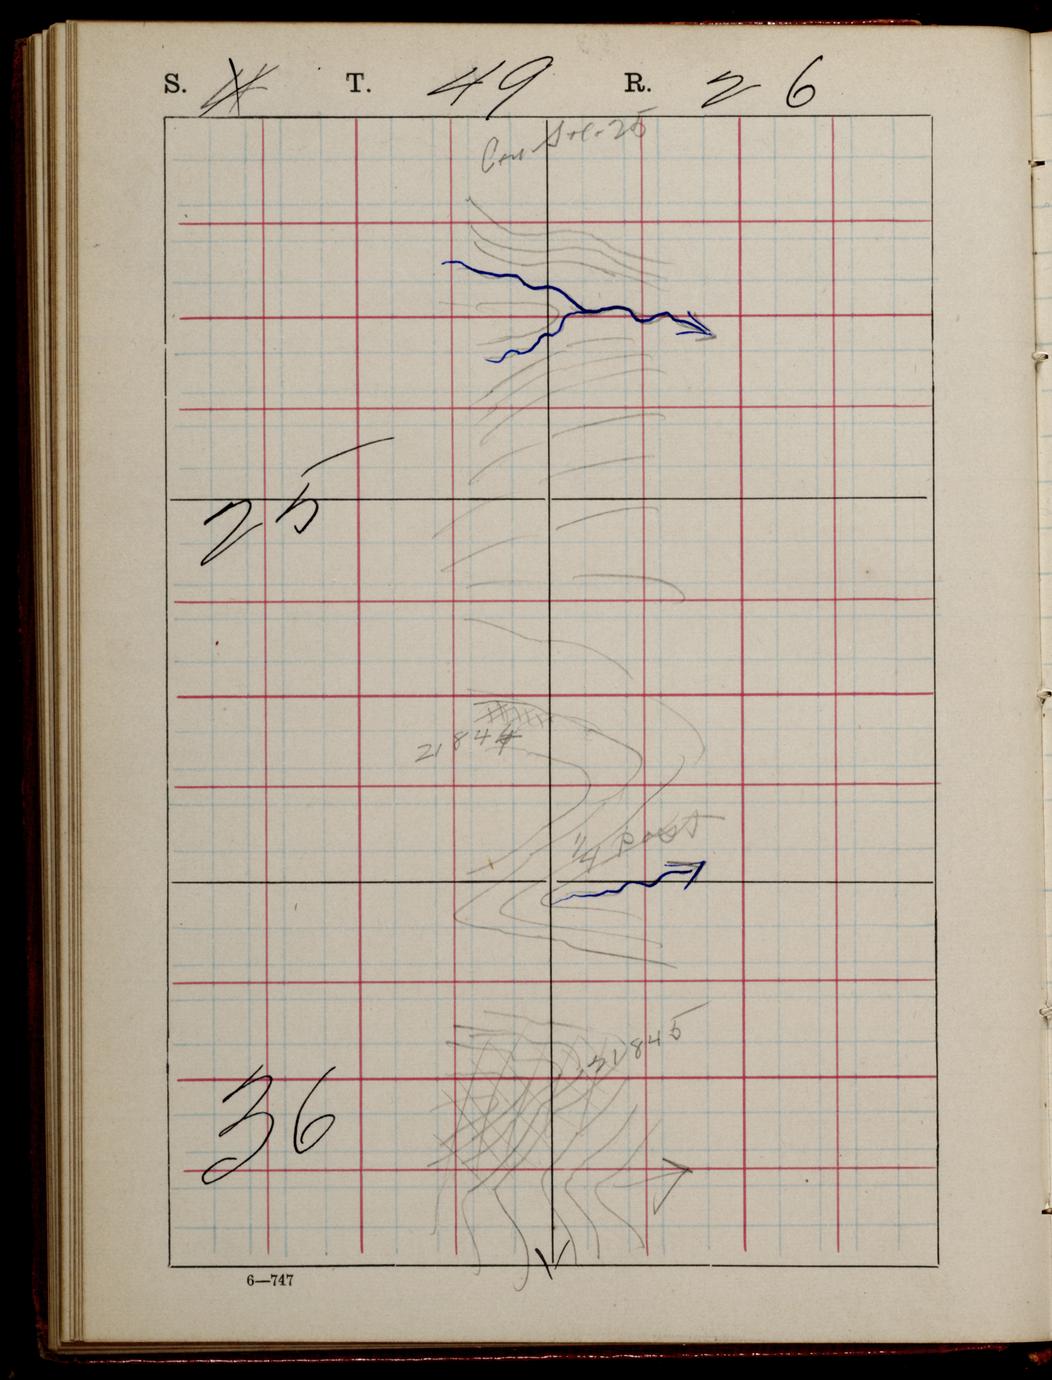 S. 4 T. 49 R. 26
Cor. Sec. 25
25
21844
1/4 Post
21845
36
6—747